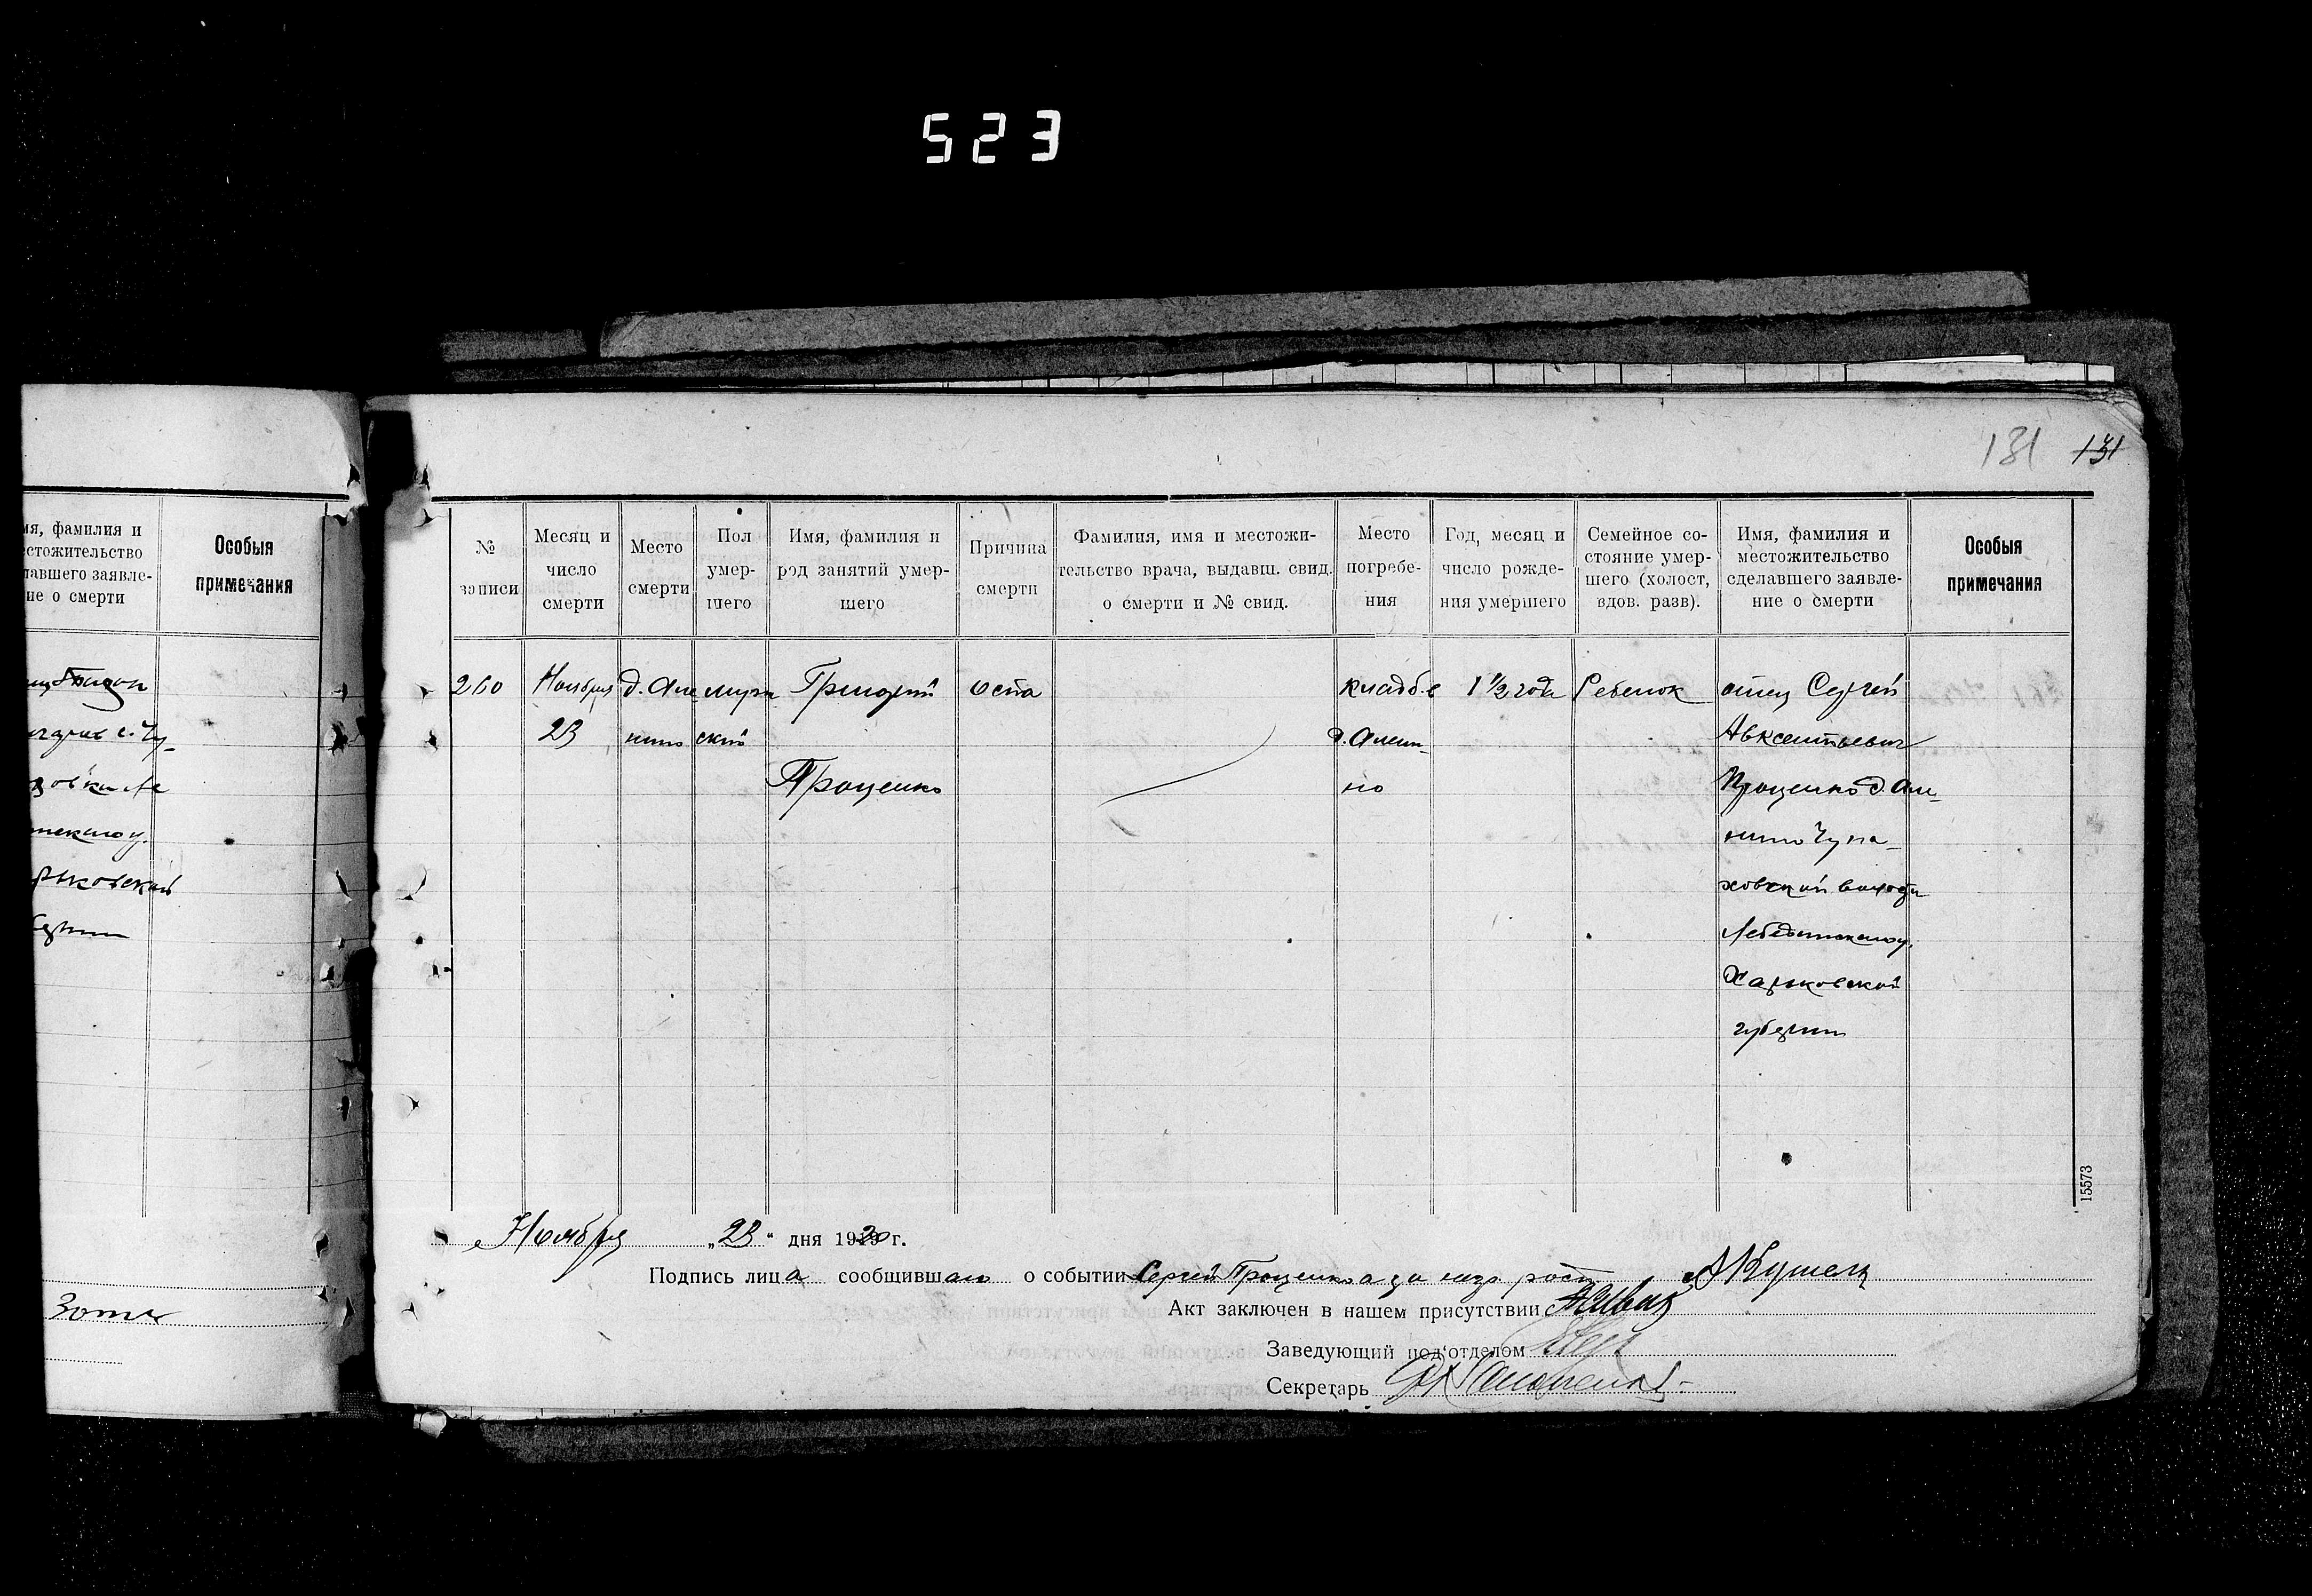 523
131 131
мя, фамилия и
стожительство
лавшего заявле-
ие о смерти
Особыя
примечания
овка Ле
рьковской
Зота
№
записи
Месяц и
число
смерти
Место
смерти
Пол
умер-
шего
Имя, фамилия и
род занятий умер-
шего
Причина
смерти
Фамилия, имя и местожи-
тельство врача, выдавш. свид.
о смерти и № свид.
Место
погребе-
ния
Год, месяц и
число рожде-
ния умершего
Семейное со-
стояние умер-
шего (холост,
вдов. разв).
Имя, фамилия и
местожительство
сделавшего заявле-
ние о смерти
Особыя
примечания
260
Ноября
23
д. Але
нино
мужс
ский
Григорий
Проценко
оспа
кладб.е
д. Алени-
но
1 1/2 года
Ребенок
отец Сергей
Авксентьевич
Проценко д. Але-
нино Чупа-
ховской волости
Лебединского у.
Харьковской
губернии
15573
Ноября „23“ дня 1920 г.
Подпись лица сообщившаго о событии Сергей Проценко а за негр. расп.
Акт заключен в нашем присутствии
Заведующий под'отделом
Секретарь